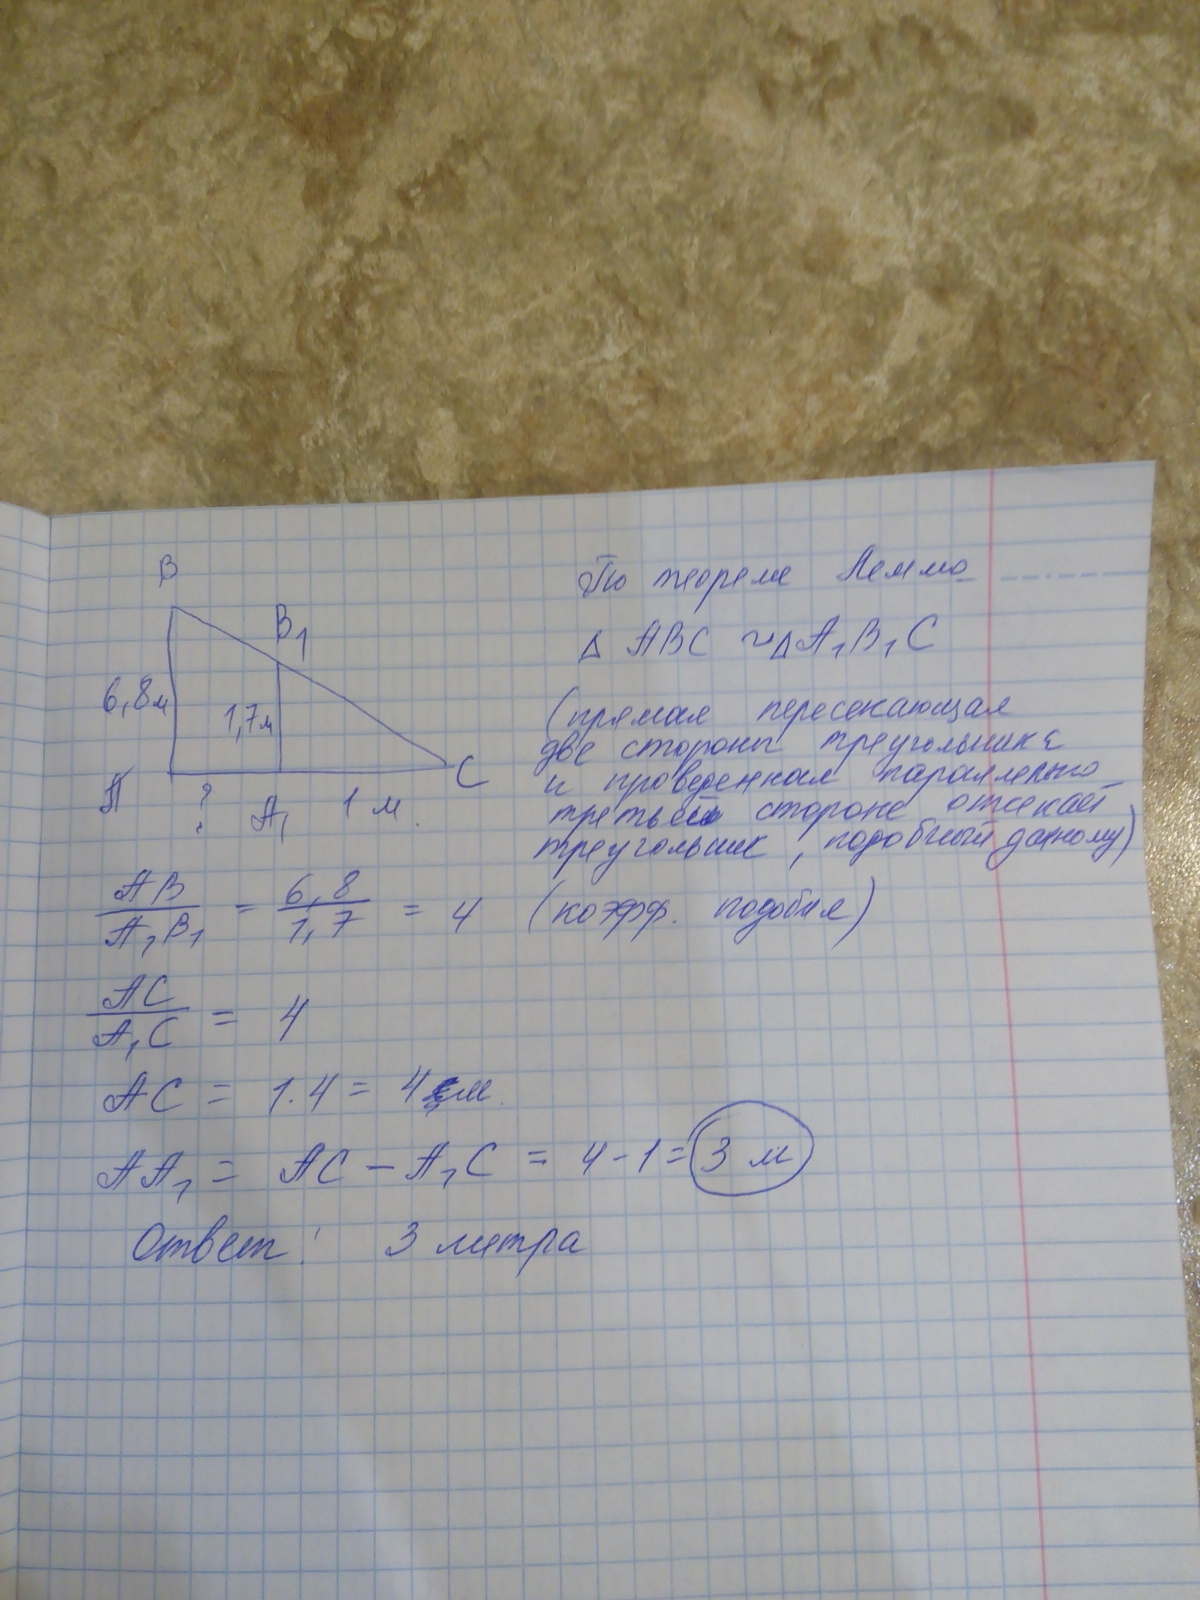 B
B₁
6,8м
1,7м
A
?
A₁
1 м.
C
По теореме Лемма
Δ ABC ~ Δ A₁B₁C
(прямая пересекающая
две стороны треугольника
и проведенная параллельно
третьей стороне отсекает
треугольник, подобный данному)
AB/A₁B₁ = 6,8/1,7 = 4 (коэфф. подобия)
AC/A₁C = 4
AC = 1·4 = 4 м.
AA₁ = AC − A₁C = 4-1 = 3 м
Ответ: 3 метра